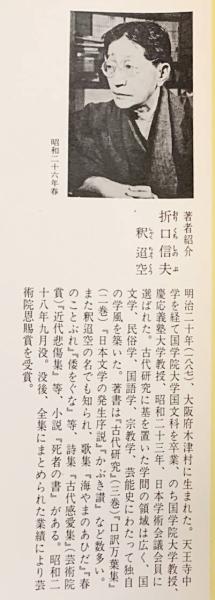 昭和二十六年春
著者紹介
おりくちしのぶ
折口信夫
しゃくちょうくう
釈迢空
明治二十年(一八七)、大阪府木津村に生まれた。天王寺中
学を経て国学院大学国文科を卒業、のち国学院大学教授、
慶応義塾大学教授、昭和二十三年、日本学術会議会員に
選ばれた。古代研究に基を置いた学問の領域は広く、国
文学、民俗学、国語学、宗教学、芸能史にわたって独自
の学風を築いた。著書は『古代研究(三巻)』『口訳万葉集』
(二巻)『日本文学の発生序説』『かぶき讃』など数多い。
また釈迢空の名でも知られ、歌集『海やまのあひだ』『春
のことぶれ』『倭をぐな』等、詩集『古代感愛集』(芸術院
賞)『近代悲傷集』等、小説『死者の書』がある。昭和二
十八年九月没。没後、全集にまとめられた業績により芸
術院恩賜賞を受賞。